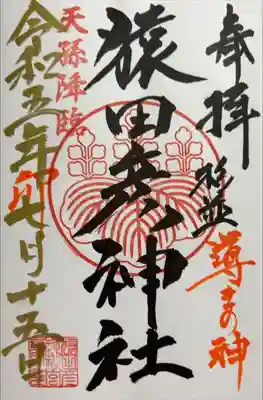 奉拝
杉並
導きの神
猿田彦神社
天孫降臨
令和五年卯七月十五日